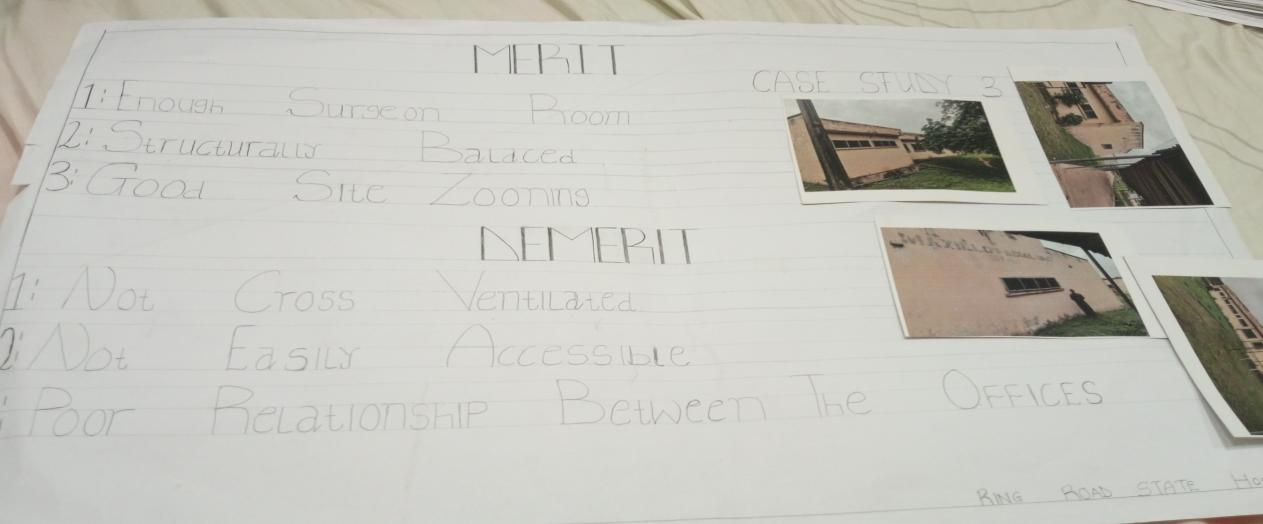 MERIT
1: Enough Surgeon Room
2: Structurally Balaced
3: Good Site Zooning
CASE STUDY 3
DEMERIT
1: Not Cross Ventilated
2: Not Easily Accessible
: Poor Relationship Between The Offices
RING ROAD STATE